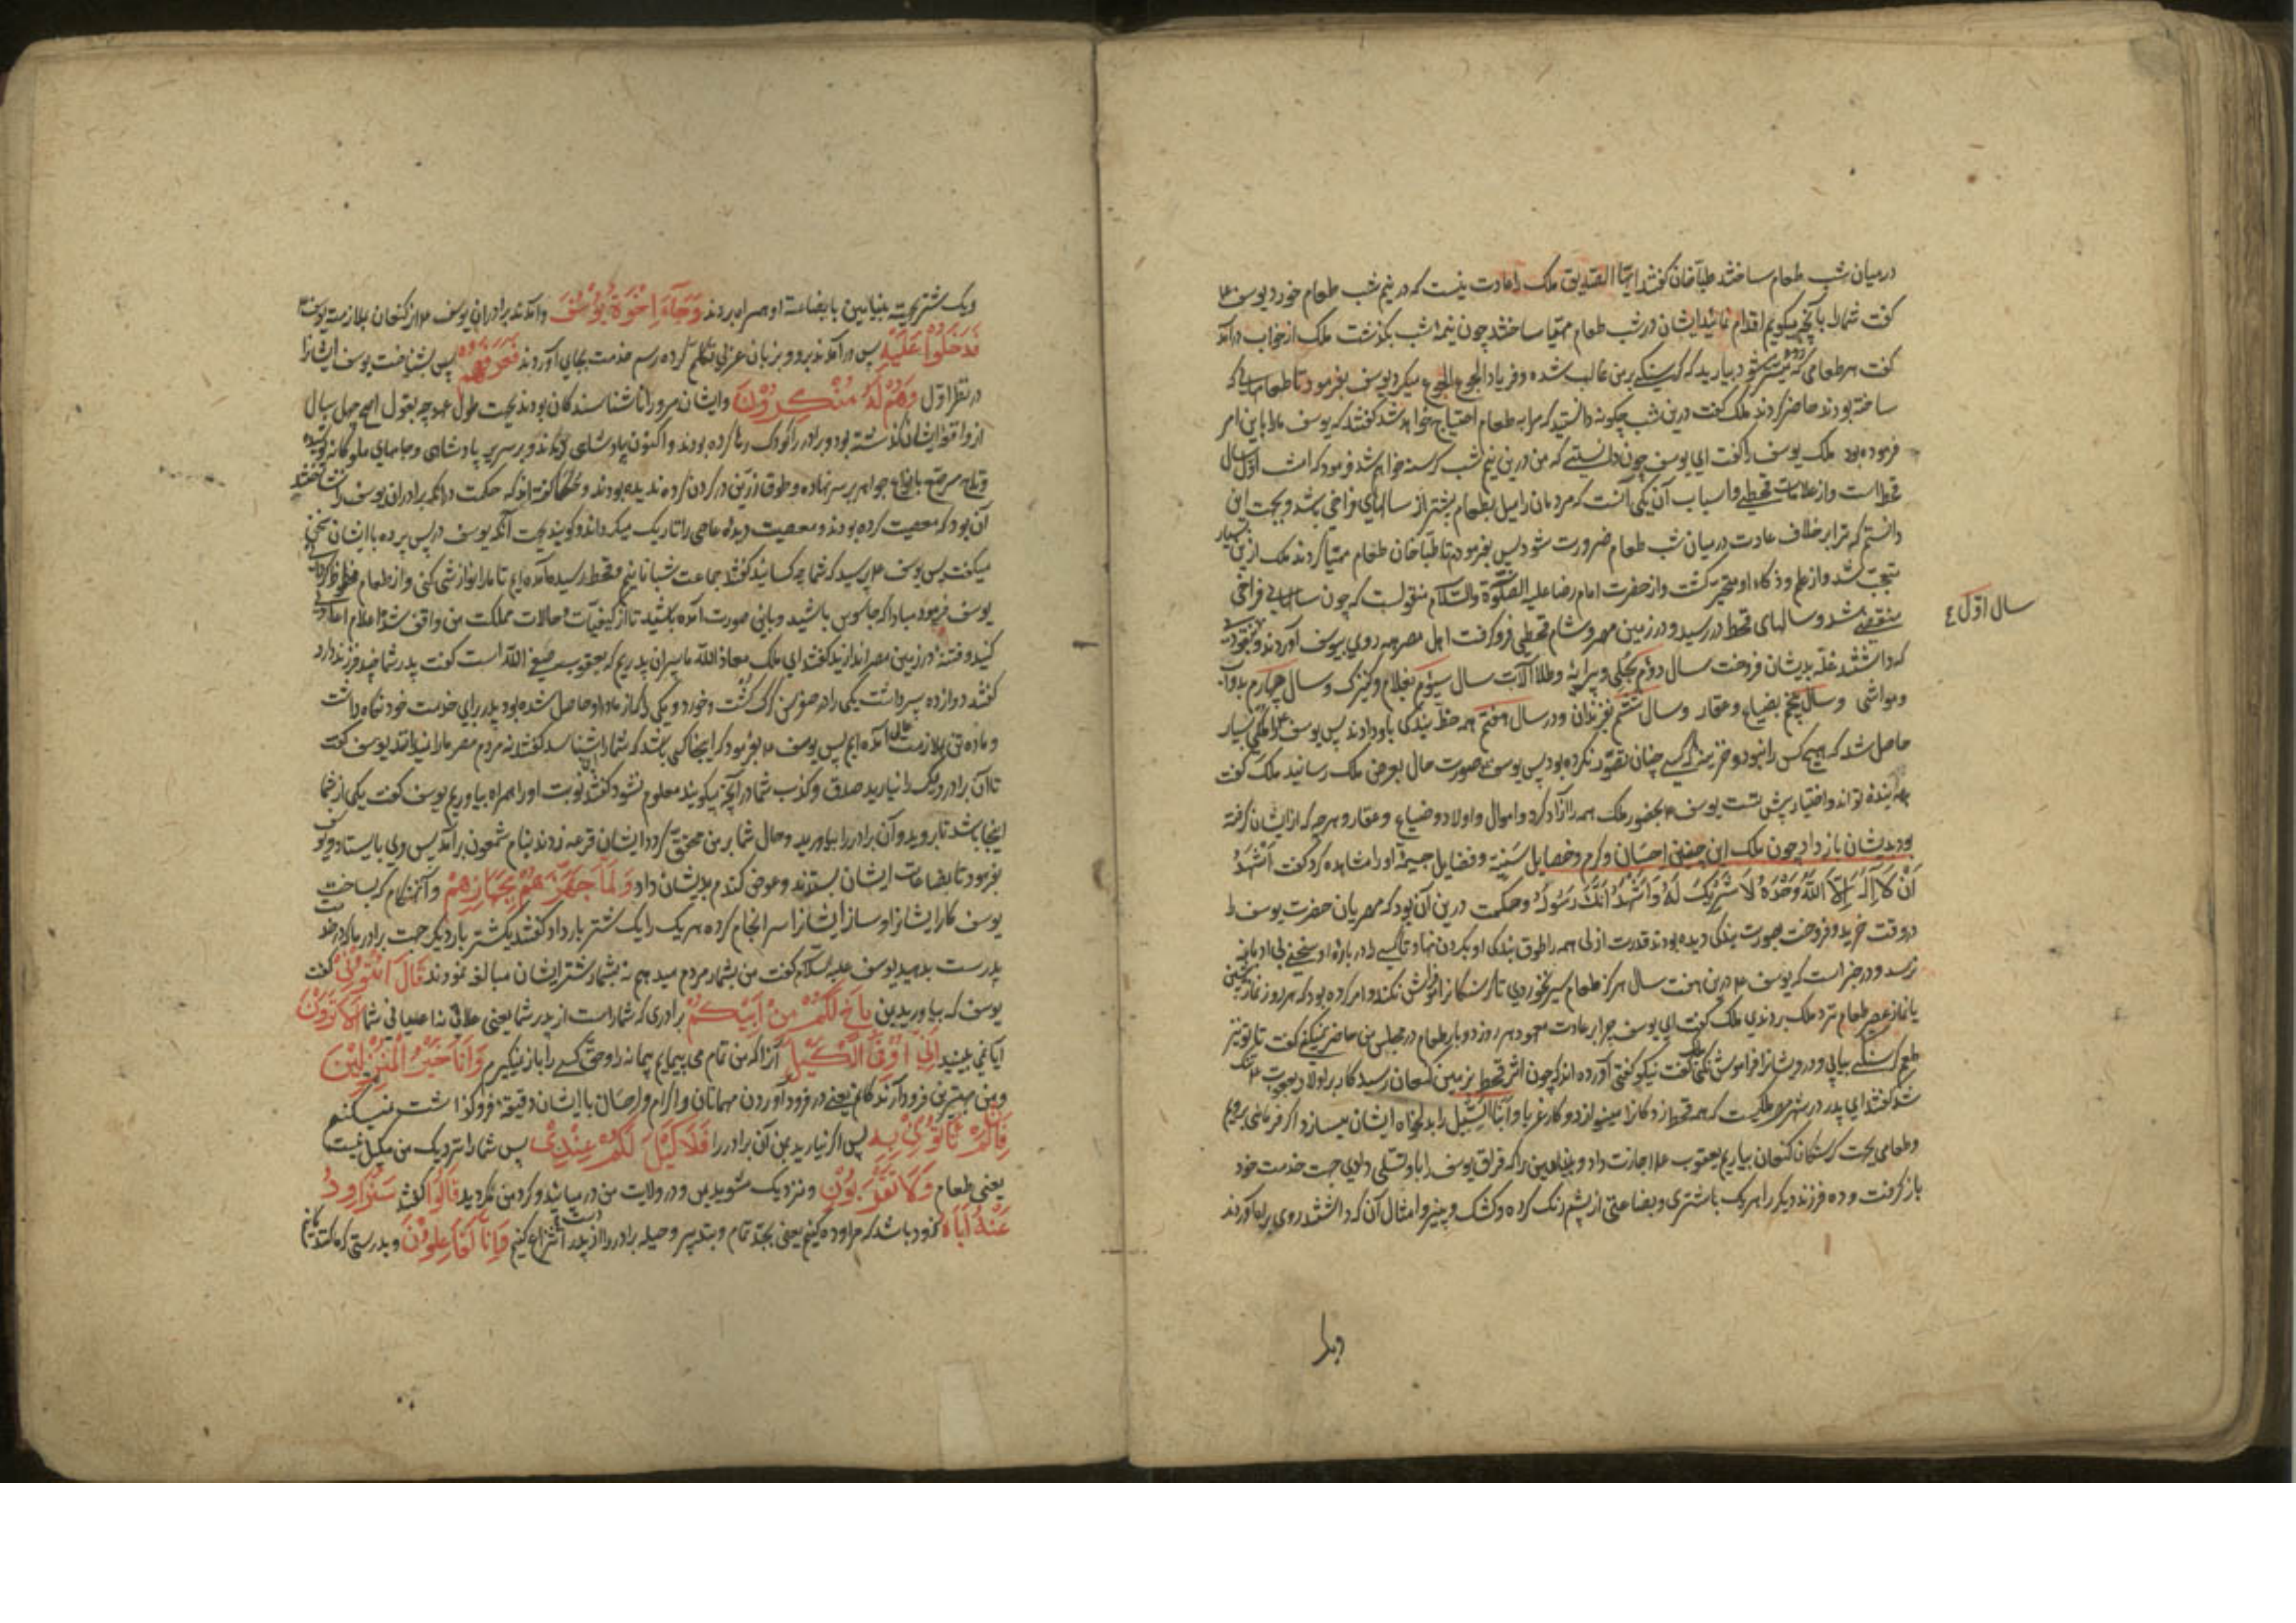 درمیان شب طعام ساختند طباخان گفتند ایها الصدیق ملک را عادت نیست که در نیم شب طعام خورد یوسف ع
گفت شما را بآنچه میگویم اقدام نمائید ایشان در شب طعام مهیا ساختند چون نیمه شب بگذشت ملک از خواب درآمد
گفت هر طعامی که میسر شود بیارید که گرسنگی بر من غالب شده و فریاد الجوع الجوع میکرد یوسف بفرمود تا طعامهائی که
ساخته بودند حاضر کردند ملک گفت درین شب چکونه دانستید که مرا به طعام احتیاج خواهد شد گفتند که یوسف ما را باین امر
فرموده بود ملک یوسف را گفت ای یوسف چون دانستی که من درین نیم شب گرسنه خواهم شد فرمود که امشب اول سال
قحط است و از علامات قحطی و اسباب آن یکی آنست که مردمان را میل بطعام بیشتر از سالهای فراخی باشد و بجهت این
دانستم که ترا بر خلاف عادت در میان شب طعام ضرورت شود پس بفرمودم تا طباخان طعام مهیا کردند ملک ازین بسیار
متعجب شد و از علم و ذکاء او متحیر گشت و از حضرت امام رضا علیه الصلوة والسلام منقولست که چون سالهای فراخی
سال اول ع
منقضی شد و سالهای قحط در رسید و در زمین مصر و شام قحطی فرو گرفت اهل مصر همه روی بیوسف آوردند و نقودی
که داشتند غله بدیشان فروخت سال دوم بحلی و پیرایه و طلا آلات سال سیوم بغلام و کنیزک و سال چهارم بدواب
و مواشی و سال پنجم بضیاع و عقار و سال ششم بفرزندان و در سال هفتم همه خط بندگی باو دادند پس یوسف را ملکی بسیار
حاصل شد که هیچ کس را نبود و خزینه که کسی چنان تصور نکرده بود پس یوسف ع صورت حال بعرض ملک رسانید ملک گفت
همه بنده تو اند و اختیار پیش تست یوسف ع بحضور ملک همه را آزاد کرد و اموال و اولاد و ضیاع و عقار و هر چه که از ایشان گرفته
بود بدیشان باز داد چون ملک این چنین احسان و کرم و خصایل سنیه و فضایل جسیمه او را مشاهده کرد گفت اَشْهَدُ
اَنْ لَا اِلَهَ اِلَّا اللّهُ وَحْدَهُ لَا شَرِیْکَ لَهُ وَاَشْهَدُ اَنَّکَ رَسُوْلُهُ وحکمت درین آن بود که مصریان حضرت یوسف را
در وقت خرید و فروخت بصورت بندگی دیده بودند قدرت ازلی همه را طوق بندگی او بگردن نهاد تا کسی را در باره او سخن بی ادبانه
نرسد و در خبر است که یوسف ع درین هفت سال هرگز طعام سیر نخوردی تا گرسنگان را فراموش نکند و امر کرده بود که هر روز نماز پیشین
یا نماز عصر طعام نزد ملک بردندی ملک گفت ای یوسف چرا بر عادت معهود هر روز دو بار طعام در مجلس من حاضر نمیکنی گفت تا تو نیز
طعم گرسنگی بیابی و درویشان را فراموش نکنی ملک گفت نیکو گفتی آورده اند که چون اثر قحط بزمین کنعان رسید کار بر اولاد یعقوب ع تنگ
شد گفتند ای پدر در شهر مصر ملکیست که همه قحط زدگان را مینوازد و کار غربا و ابنا السبیل را بدلخواه ایشان میسازد اگر فرمائی برویم
و طعامی بجهت گرسنگان کنعان بیاریم یعقوب ع اجازت داد و بنیامین را که فراق یوسف را باو تسلی دادی جهت خدمت خود
باز گرفت و ده فرزند دیگر را هر یک با شتری و بضاعتی از پشم رنگ کرده و کشک و پنیر و امثال آن که داشتند روی براه آوردند
ویک شتر بجهت بنیامین با بضاعت او همراه بردند وَجَآءَ اِخْوَةُ یُوْسُفَ و آمدند برادران یوسف ع از کنعان بملازمت یوسف ع
فَدَخَلُوا عَلَیْهِ پس درآمدند برو و بزبان عبری تکلم کرده رسم خدمت بجای آوردند فَعَرَفَهُمْ پس بشناخت یوسف ایشانرا
در نظر اول وَهُمْ لَهُ مُنْکِرُوْنَ و ایشان مر او را ناشناسندگان بودند بجهت طول عهد چه بقول اصح چهل سال
از واقعه ایشان گذشته بود و برادر را کودک رها کرده بودند و اکنون پادشاهی دیدند و بر سریر پادشاهی و جامهای ملوکانه پوشیده
و تاج مرصع بانواع جواهر بر سر نهاده و طوق زرین در گردن کرده ندیده بودند و حکما گفته اند که حکمت در آنکه برادران یوسف را نشناختند
آن بود که معصیت کرده بودند و معصیت دیده عاصی را تاریک میگرداند و گویند بجهت آنکه یوسف در پس پرده با ایشان سخن
میگفت پس یوسف ع پرسید که شما چه کسانید گفتند جماعت شبانانیم و قحط رسیده آمده ایم تا ما را نوازشی کنی و از طعام محظوظ گردانی
یوسف فرمود مبادا که جاسوس باشید و باین صورت آمده باشید تا از کیفیات و حالات مملکت من واقف شده اعلام اعادی
کنید و فتنه در زمین مصر اندازید گفتند ای ملک معاذ الله ما پسران پدریم که یعقوب صفی الله است گفت پدر شما چند فرزند دارد
گفتند دوازده پسر داشت یکی را در صغر سن گرگ کشت و خورد و یکی را که از مادر او حاصل شده بود پدر برای خدمت خود نگاه داشت
و ما ده تن بملازمت عالی آمده ایم پس یوسف ع بفرمود که اینجا کسی باشد که شما را شناسد گفتند نه مردم مصر ما را ندانند یوسف گفت
تا آن برادر دیگر را نیارید صدق و کذب شما در آنچه میگویند معلوم نشود گفتند نوبت او را همراه بیاوریم یوسف گفت یکی از شما
اینجا باشد تا بروید و آن برادر را بیاورید و حال شما بر من محقق گردد ایشان قرعه زدند بنام شمعون برآمد پس وی بایستاد و یوسف
بفرمود تا بضاعات ایشان بستدند و عوض گندم بدیشان داد وَلَمَّا جَهَّزَهُمْ بِجَهَازِهِمْ و آنهنگام که بساخت
یوسف کار ایشانرا و ساز ایشانرا سرانجام کرده هر یک را یک شتر بار داد گفتند یکشتر بار دیگر جهت برادر ما که در خدمت
پدرست بدهید یوسف علیه السلام گفت من بشمار مردم میدهم نه بشمار شتر ایشان مبالغه نمودند قَالَ ائْتُوْنِیْ گفت
یوسف که بیاورید بمن بِاَخٍ لَکُمْ مِنْ اَبِیْکُمْ برادری که شماراست از پدر شما یعنی علاتی نه اعیانی شما اَلَا تَرَوْنَ
آیا نمی بینید اَنِّیْ اُوْفِی الْکَیْلَ آنرا که من تمام می پیمایم پیمانه را و حق کسی را باز نمیگیرم وَاَنَا خَیْرُ الْمُنْزِلِیْنَ
و من بهترین فرود آرندگانم یعنی در فرود آوردن مهمانان و اکرام و احسان با ایشان دقیقه فروگذاشت نمیکنم
فَاِنْ لَمْ تَأْتُوْنِیْ بِهِ پس اگر نیارید بمن آن برادر را فَلَا کَیْلَ لَکُمْ عِنْدِیْ پس شما را نزدیک من مکیل نیست
یعنی طعام وَلَا تَقْرَبُوْنِ و نزدیک مشوید بمن و در ولایت من در میائید و گرد من نگردید قَالُوْا گفتند سَنُرَاوِدُ
عَنْهُ اَبَاهُ زود باشد که مراوده کنیم یعنی بجهد تمام و بتدبیر و حیله برادر را از دست پدر انتزاع کنیم وَاِنَّا لَفَاعِلُوْنَ و بدرستی که ما کنندگانیم